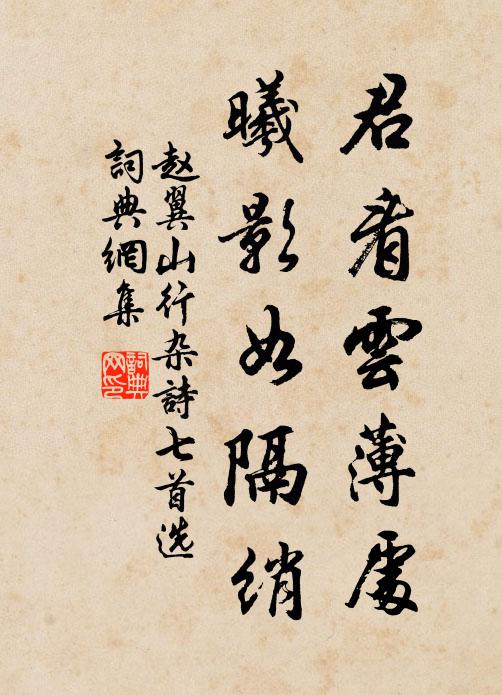 君看雲薄處
曦影如隔綃
赵翼山行杂詩七首选
詞典網集
詞典網印